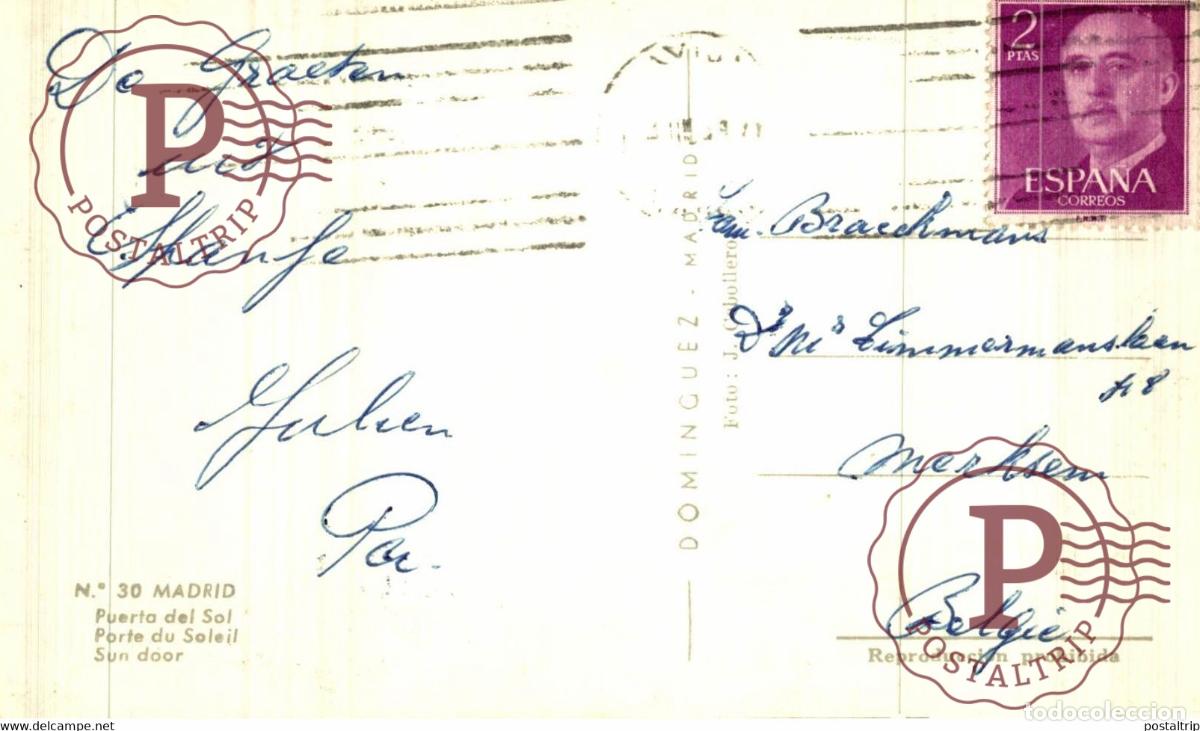 De Graeten
uit
Spanje
Julien
2 PTAS
ESPAÑA
CORREOS
Fam. Braeckmans
Dr Ms Timmermanslaan
48
Merksem
België
DOMINGUEZ - MADRID
Foto: J. Cabollero
N.º 30 MADRID
Puerta del Sol
Porte du Soleil
Sun door
Reproducción prohibida
P
POSTALTRIP
P
POSTALTRIP
todocoleccion
www.delcampe.net
postaltrip